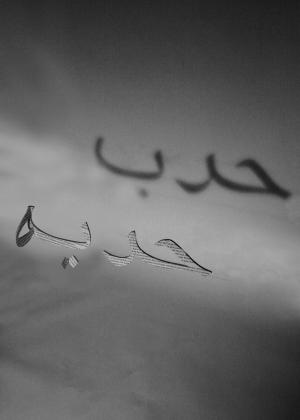 حدب
حدبه